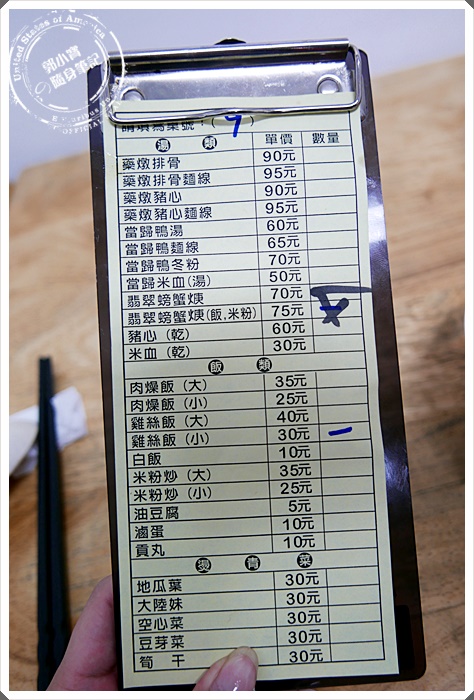 United States of America
郭小寶
隨身筆記
請填寫桌號：( 7 )
湯 類 單價 數量
藥燉排骨 90元
藥燉排骨麵線 95元
藥燉豬心 90元
藥燉豬心麵線 95元
當歸鴨湯 60元
當歸鴨麵線 65元
當歸鴨冬粉 70元
當歸米血(湯) 50元
翡翠螃蟹焿 70元
翡翠螃蟹焿(飯,米粉) 75元
豬心 (乾) 60元
米血 (乾) 30元
飯 類
肉燥飯 (大) 35元
肉燥飯 (小) 25元
雞絲飯 (大) 40元
雞絲飯 (小) 30元 一
白飯 10元
米粉炒 (大) 35元
米粉炒 (小) 25元
油豆腐 5元
滷蛋 10元
貢丸 10元
燙 青 菜
地瓜葉 30元
大陸妹 30元
空心菜 30元
豆芽菜 30元
筍 干 30元